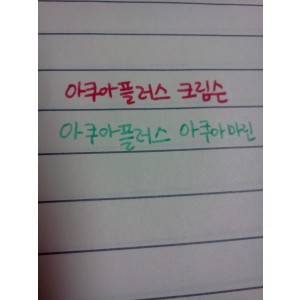 아쿠아플러스 크림슨
아쿠아플러스 아쿠아마린